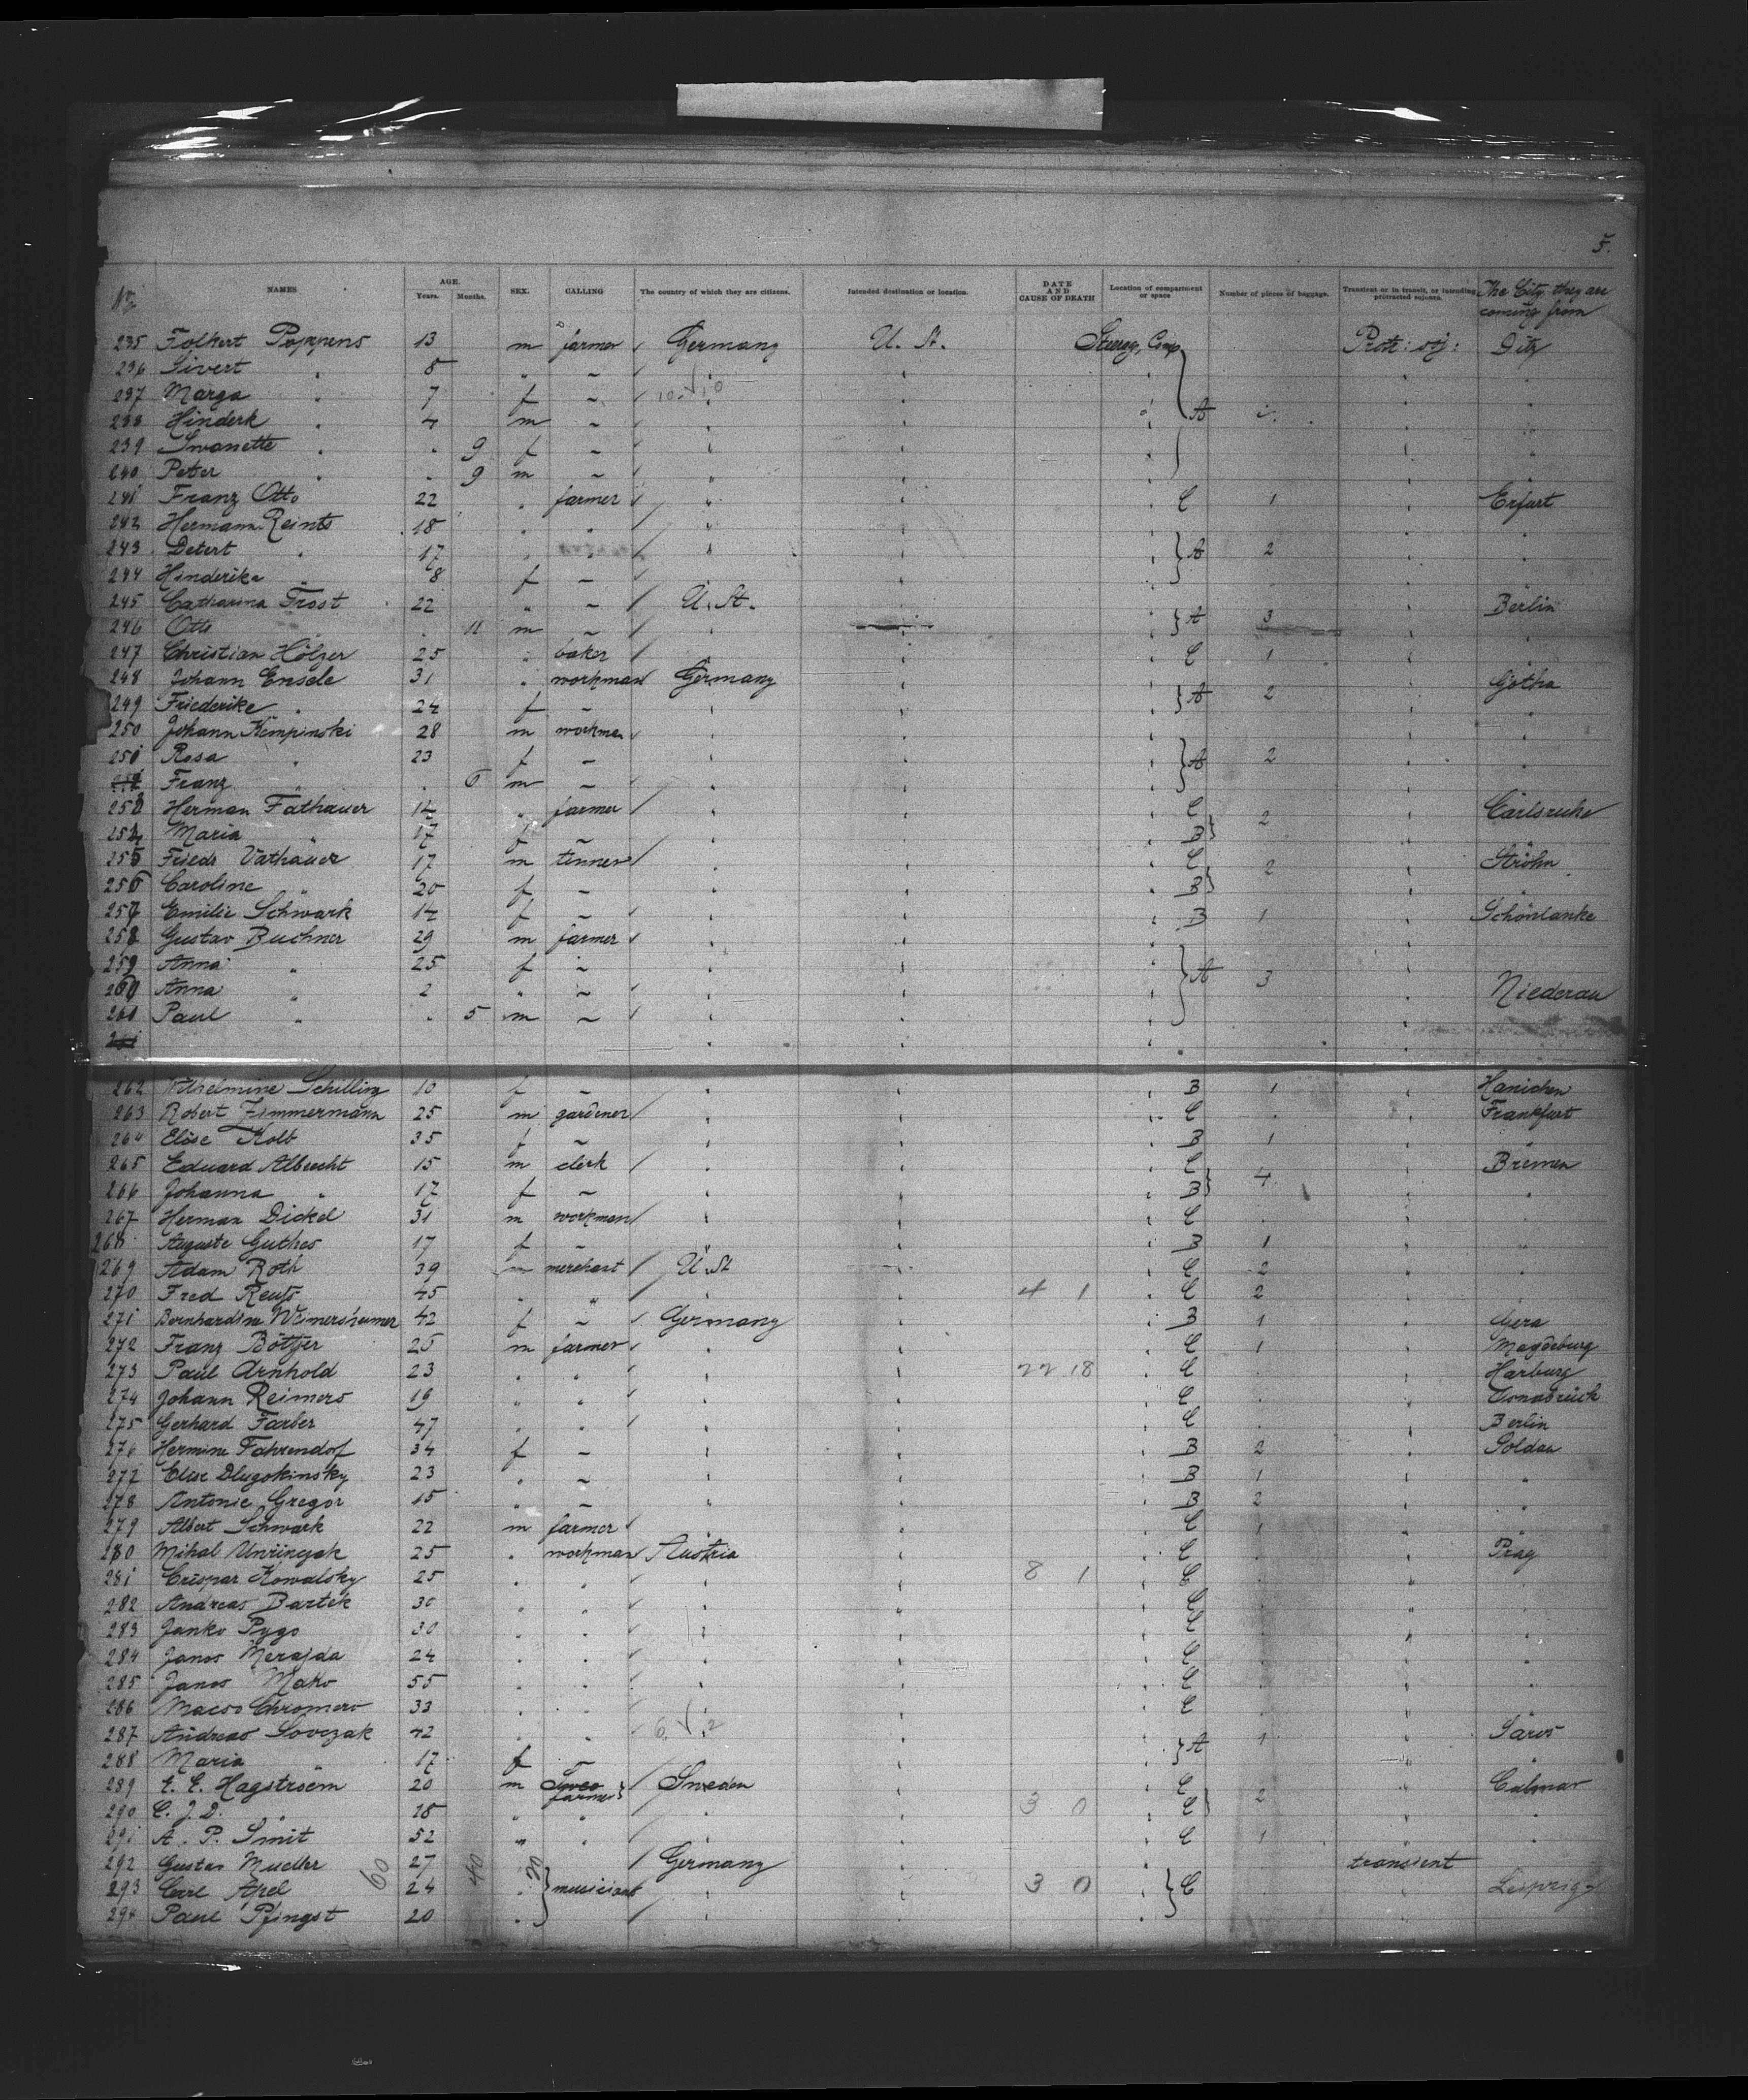 5.
No NAMES AGE. Years. Months. SEX. CALLING The country of which they are citizens. Intended destination or location. DATE AND CAUSE OF DEATH Location of compartment or space Number of pieces of baggage. Transient or in transit, or intending protracted sojourn. The City they are coming from
235 Folkert Poppens 13 m farmer Germany U. St. Steerag. Comp Protr: soj:
236 Sivert " 8 " ~ " "
237 Marga " 7 f ~ " "
238 Hinderk " 4 m ~ " " A
239 Swanette " " 9 f ~ " "
240 Peter " " 9 m ~ " "
241 Franz Otto 22 " farmer " " C 1 " Erfurt
242 Hermann Reints 18 " " " "
243 Detert " 17 " " " " A 2 "
244 Hinderike " 8 f ~ "
245 Catharina Frost 22 " ~ U. St. " Berlin
246 Otto " " 11 m ~ " " A 3 "
247 Christian Hölzer 25 " baker " " C 1 "
248 Johann Ensele 31 " workman Germany " Gotha
249 Friederike " 24 f ~ " " A 2 "
250 Johann Kempinski 28 m workman " " "
251 Rosa " 23 f ~ " " A 2 "
252 Franz " " 6 m ~ " "
253 Herman Fathauer 14 " farmer " " C 2 " Carlsruhe
254 Maria " 17 f ~ " " B
255 Friedr Vathauer 17 m tinner " " C 2 " Ströhn
256 Caroline " 20 f ~ " " B "
257 Emilie Schwark 14 f ~ " " B 1 " Schönlanke
258 Gustav Buchner 29 m farmer " "
259 Anna " 25 f ~ " " A 3
260 Anna " 2 " ~ " " Niederau
261 Paul " " 5 m ~ " "
262 Wilhelmine Schilling 10 f ~ " " B 1 " Hanichen
263 Robert Zimmermann 25 m gardener " " C " " Frankfurt
264 Elise Kolb 35 f ~ " " B 1 "
265 Eduard Albrecht 15 m clerk " " C 4 " Bremen
266 Johanna " 17 f ~ " " B "
267 Herman Dickel 31 m workman " " C "
268 Auguste Guthes 17 f ~ " " B 1 "
269 Adam Roth 39 m merchant U. St " C 2 "
270 Fred Reuss 45 " " " 4 1 C 2 "
271 Bernhardine Weimersheimer 42 f ~ Germany " B 1 " Gera
272 Franz Böttjer 25 m farmer " " C 1 " Magdeburg
273 Paul Arnhold 23 " " " " 22 18 C " Harburg
274 Johann Reimers 19 " " " " C " Osnabrück
275 Gerhard Farber 47 " " " " C " Berlin
276 Hermine Fahrendorf 34 f ~ " " B 2 " Soldau
277 Elise Dlugokinsky 23 " ~ " " B 1 " "
278 Antonie Gregor 15 " ~ " " B 2 " "
279 Albert Schwark 22 m farmer " " C 1 "
280 Mihal 25 " workman Austria " C " Prag
281 Crispar Kowalsky 25 " " " " 8 1 C " "
282 Andreas Bartek 30 " " " " C " "
283 Janko Pygo 30 " " " " C " "
284 Janos Merajda 24 " " " " C " "
285 Janos Mako 55 " " " " C " "
286 Macso Chromero 33 " " " " C " "
287 Andreas Sovczak 42 " " 6 2 " A 1 " Saros
288 Maria " 17 f ~ " " "
289 A. E. Hagstroem 20 m farmer Sweden " C 2 " Calmar
290 C. J. D. " 18 " " " " 3 0 C "
291 A. P. Smit 52 " " " " C 1 " "
292 Gustav Mueller 27 Germany " transient
293 Carl Apel 24 " musicians " " 3 0 C " Leipzig
294 Paul Pfingst 20 " " "
60 40 20